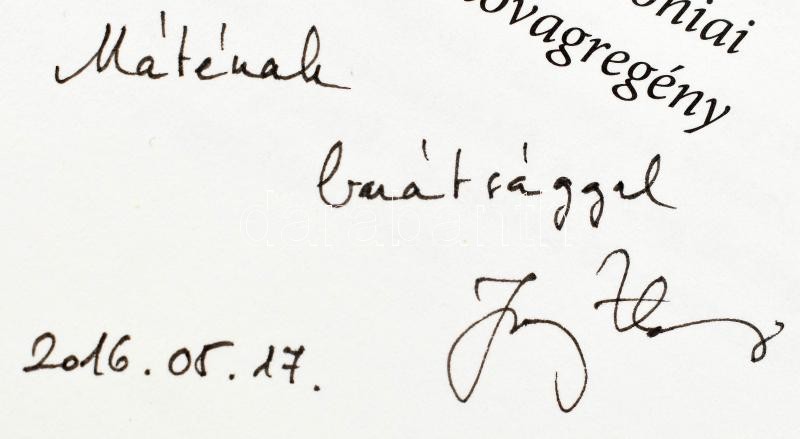 óniai
lovagregény
Máténak
barátsággal
2016. 05. 17.
darabanth